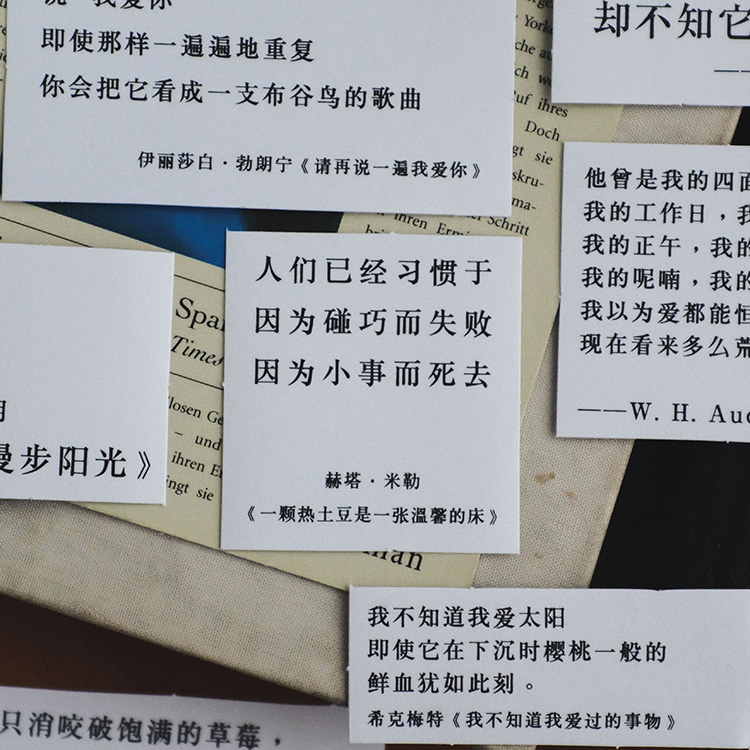 说"我爱你
即使那样一遍遍地重复
你会把它看成一支布谷鸟的歌曲
伊丽莎白·勃朗宁《请再说一遍我爱你》
却不知它
——
York
che au
ch w
Ruf ihres
Doch
gt sie
skru-
ma-
der Schritt
ihren Ermi
他曾是我的四面
我的工作日，我
我的正午，我的
我的呢喃，我的
我以为爱都能恒
现在看来多么荒
——W. H. Aud
人们已经习惯于
因为碰巧而失败
因为小事而死去
赫塔·米勒
《一颗热土豆是一张温馨的床》
月
漫步阳光》
Spa
Times
losen Ge
– und
ihren E
ingt sie
man
我不知道我爱太阳
即使它在下沉时樱桃一般的
鲜血犹如此刻。
希克梅特《我不知道我爱过的事物》
只消咬破饱满的草莓，